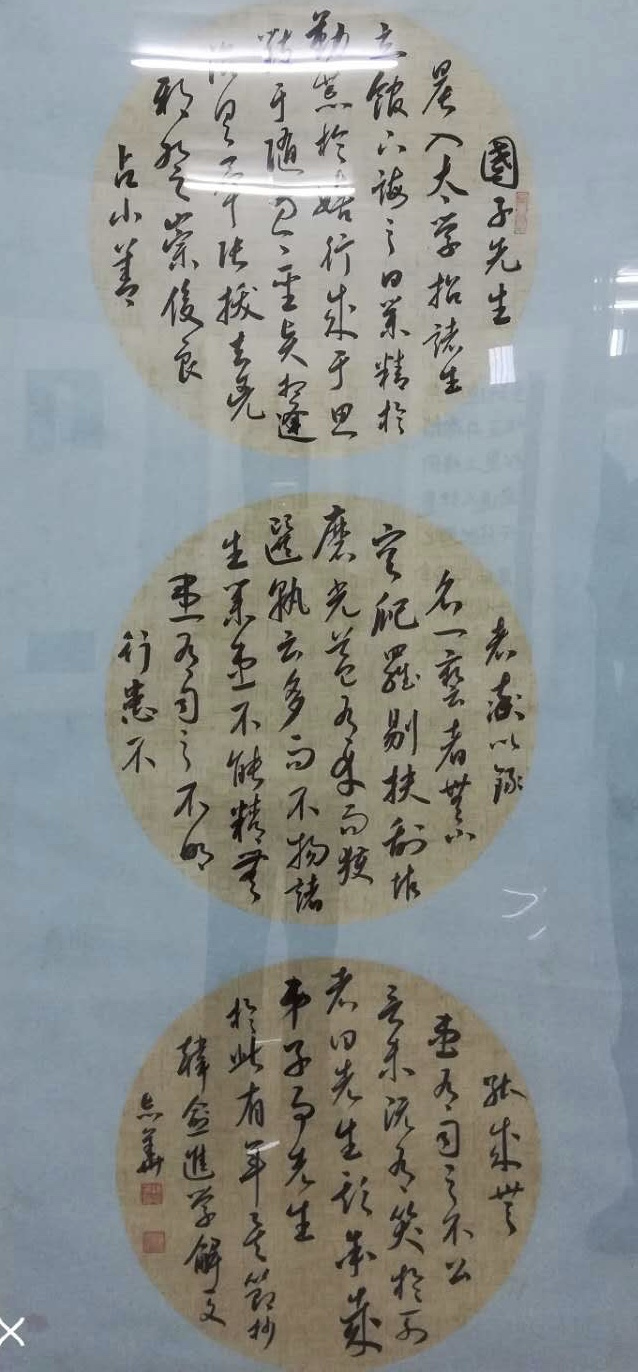 國子先生
晨入太学招諸生
立館下誨之曰業精於
勤荒於嬉行成于思
毀于隨方今聖賢相逢
治具畢張拔去兇
邪登崇俊良
占小善
者率以錄
名一藝者無不
庸爬羅剔抉刮垢
磨光蓋有幸而獲
選孰云多而不揚諸
生業患不能精無
患有司之不明
行患不
能成無
患有司之不公
言未既有笑於列
者曰先生欺余哉
弟子事先生
於此有年矣節抄
韓愈進学解文